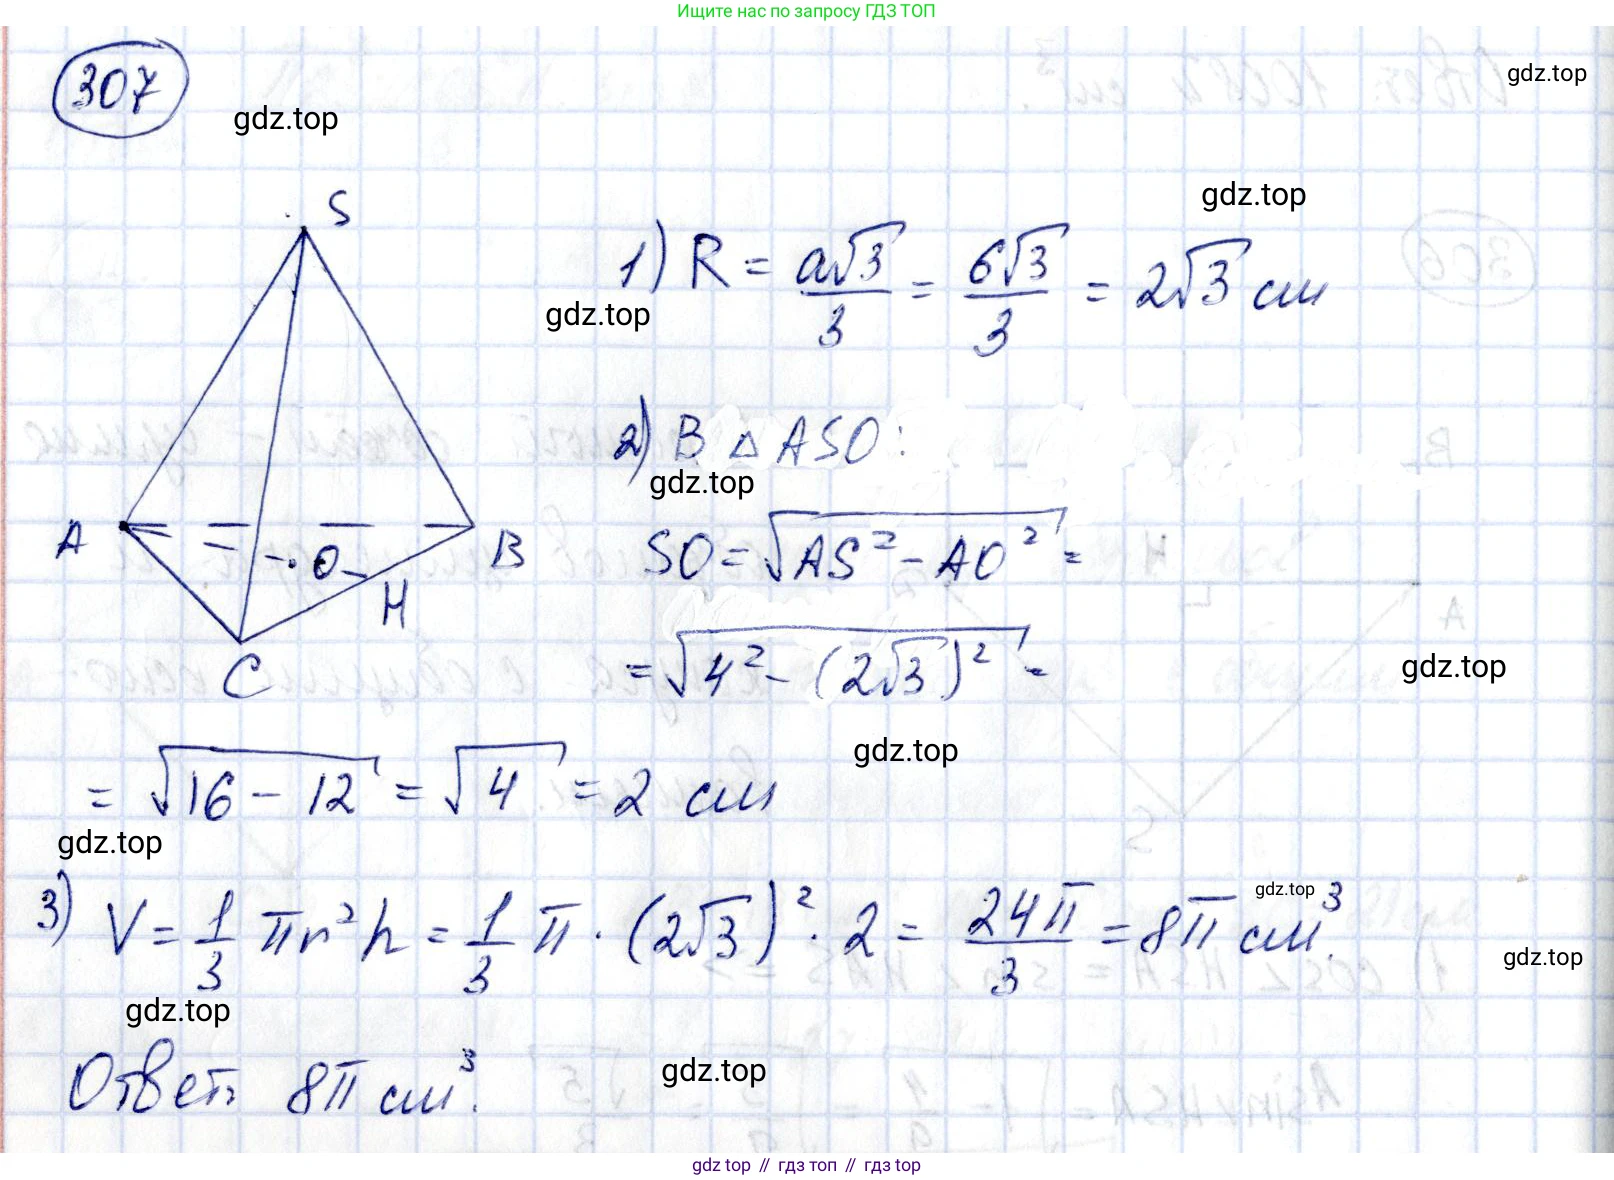 Ищите нас по запросу ГДЗ ТОП
307
gdz.top
gdz.top
gdz.top
S
1) R = a√3/3 = 6√3/3 = 2√3 см
gdz.top
2) В △ ASO:
gdz.top
A
B
O
H
C
SO = √(AS² - AO²) =
= √(4² - (2√3)²) =
gdz.top
gdz.top
= √(16 - 12) = √4 = 2 см
gdz.top
3) V = 1/3 πr²h = 1/3 π · (2√3)² · 2 = 24π/3 = 8π см³.
gdz.top
gdz.top
gdz.top
Ответ: 8π см³.
gdz.top
gdz top // гдз топ // гдз top